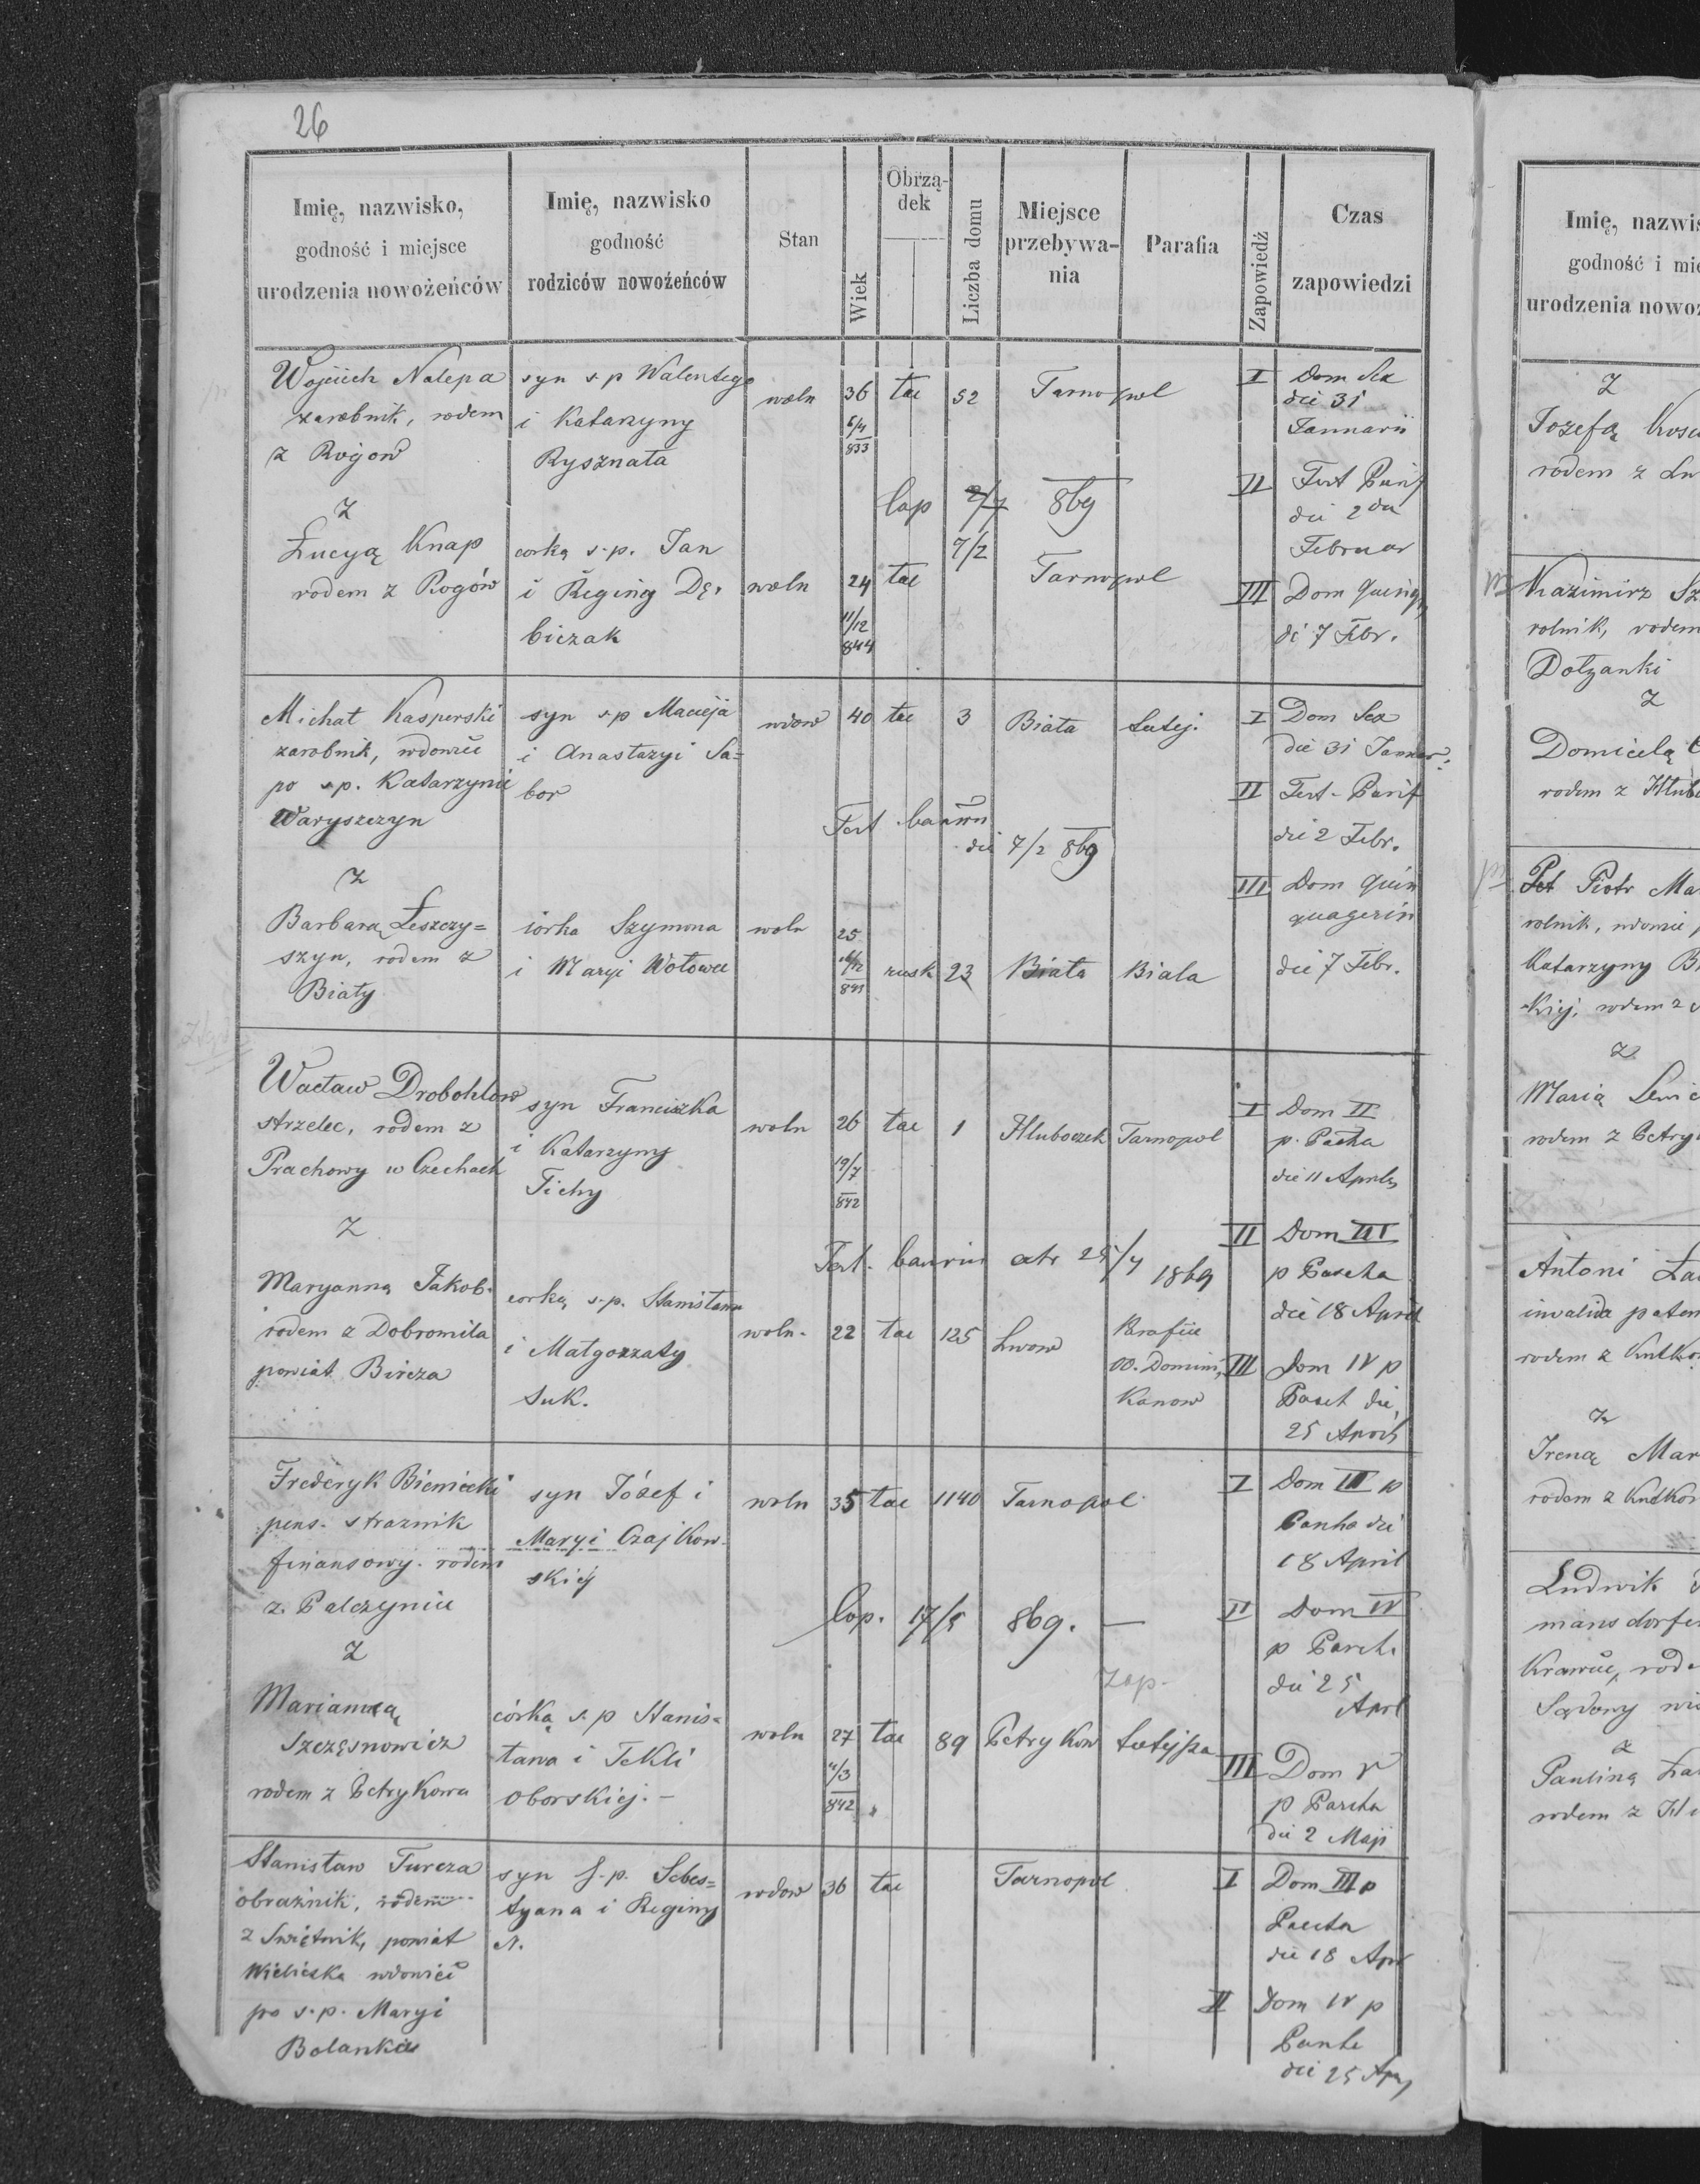 26
Imię, nazwisko,
godność i miejsce
urodzenia nowożeńców
Imię, nazwisko
godność
rodziców nowożeńców
Stan
Wiek
Obrzą-
dek
Liczba domu
Miejsce
przebywa-
nia
Parafia
Zapowiedź
Czas
zapowiedzi
Wojciech Nalepa
zarobnik, rodem
z Rogow
z
Łucyą Knap
rodem z Rogów
syn s.p Walentego
i Katarzyny
Rysznata
corką s.p. Jan
i Reginy Dę-
biczak
woln 36 łac 52 Tarnopol
6/4
833
Cop 2/7 869
7/2
woln 24 łac Tarnopol
11/12
844
I Dom Sex
die 31
Januarii
II Fest Purif
die 2 da
Februar
III Dom Quinq,
di 7 Febr.
Michał Kasperski
zarobnik, wdowiec
po s.p. Katarzynie
Waryszczyn
z
Barbarą Leszczy=
szyn, rodem z
Biały
syn s.p Macieja
i Anastazyi Sa=
bor
córka Szymona
i Maryi Wotowec
wdow 40 łac 3 Biała tutej.
die 7/2 869
woln 25
843
rusk 23 Biała Biala
I Dom Sex
die 31 Januar.
II Fest. Purif
die 2 Febr.
III Dom Quin
quagesin
die 7 Febr.
Wacław Drobohlow
strzelec, rodem z
Prachowy w Czechach
z
Maryanną Jakob.
rodem z Dobromila
powiat Bircza
syn Franciszka
i Katarzyny
Tichy
corką s.p. Stanisława
i Małgorzaty
Suk.
woln 26 łac 1 Hluboczek Tarnopol
19/7
842
25/4 1869
woln. 22 łac 125 Lwow
Parafiie
OO. Domini,
kanow
I Dom II
p. Pascha
die 11 Aprilis
II Dom III
p Pascha
die 18 April
III Dom IV p
Pasch die,
25 April
Frederyk Bieniecki
pens. straznik
finansowy. rodem
z Palczyniec
z
Marianną
Szczęsnowicz
rodem z Petrykowa
syn Józef i
Maryi Czajkow-
skiej
córką s.p Stanis=
ława i Tekli
Oborskiej. -
woln 35 łac 1140 Tarnopol
Cop. 17/5 869. —
Zap.
woln 27 łac 89 Petrykow tutejsza
4/3
842
I Dom III p
Pascha die
18 April
II Dom IV
p Pasch.
die 25
Aprl
III Dom V
p Pascha
die 2 Maji
Stanisław Turcza
obraźnik, rodem
z Swiętnik, powiat
Wieliczka wdowiec
po s.p. Maryi
syn s.p. Sebes=
tyana i Reginy
N.
wdow 36 łac Tarnopol
I Dom III p
Pascha
die 18 Apr
II Dom IV p
Pascha
die 25 Apr
Imię, nazwis
godność i mie
urodzenia nowoż
Z
Jozefą Kosc
rodem z Lu
Kazimirz Sz
rolnik, rodem
Dołżanki
Z
Domicelą
rodem z Hlubo
Piotr Ma
rolnik, wdowie
Katarzyny B
kiej, rodem z
z
Marią Lewic
rodem z Petryk
Antoni Ła
invalida paten
rodem z Kutko
z
Ireną Mar
rodem z Kutkow
Ludwik
mansdorfe
Krawiec, rod
z
Pauliną Ła
rodem z Hl